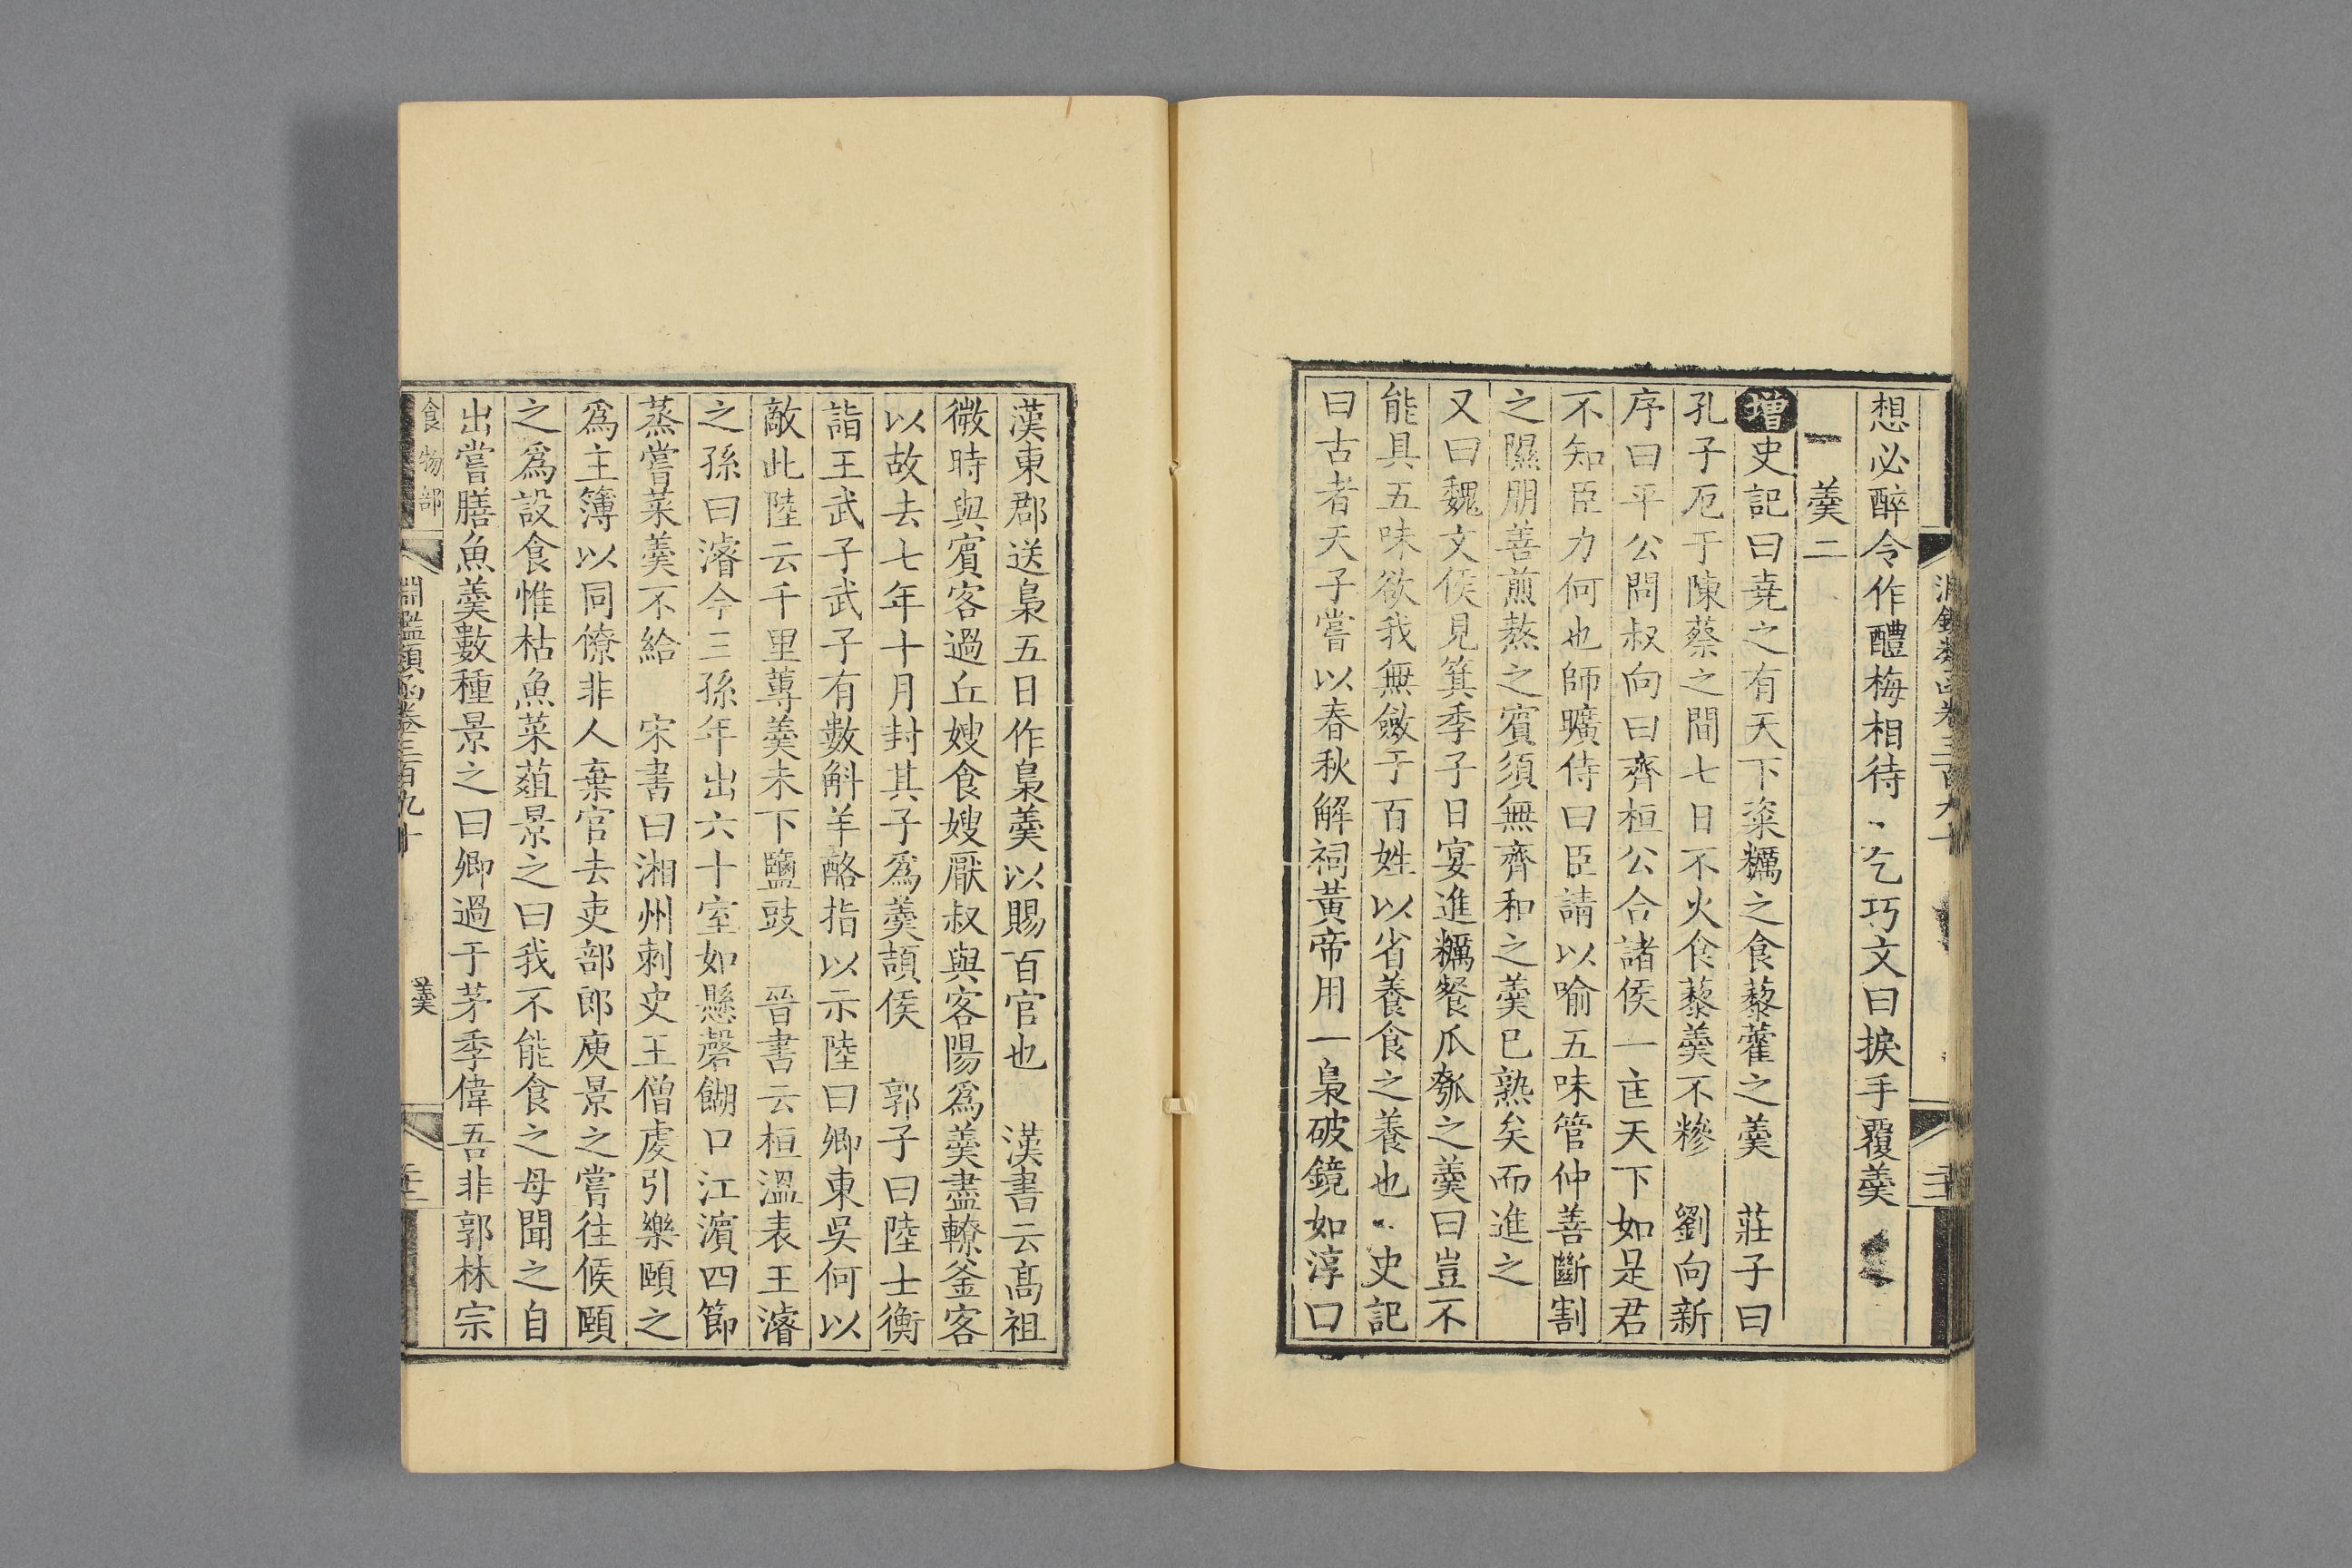 想必醉令作醴梅相待 乞巧文曰捩手覆羹
羹二
增史記曰堯之有天下粢糲之食藜藿之羹 莊子曰
孔子厄于陳蔡之間七日不火食藜羹不糝 劉向新
序曰平公問叔向曰齊桓公合諸侯一匡天下如是君
不知臣力何也師曠侍曰臣請以喻五味管仲善斷割
之隰朋善煎熬之賓須無齊和之羹已熟矣而進之
又曰魏文侯見箕季子日宴進糲餐瓜瓠之羹曰豈不
能具五味欲我無斂于百姓以省養食之養也 史記
曰古者天子嘗以春秋解祠黃帝用一梟破鏡如淳曰
漢東郡送梟五日作梟羹以賜百官也 漢書云高祖
微時與賓客過丘嫂食嫂厭叔與客陽為羹盡轑釜客
以故去七年十月封其子為羹頡侯 郭子曰陸士衡
詣王武子武子有數斛羊酪指以示陸曰卿東吳何以
敵此陸云千里蓴羹未下鹽豉 晉書云桓溫表王濬
之孫曰濬今三孫年出六十室如懸磬餬口江濱四節
蒸嘗菜羹不給 宋書曰湘州刺史王僧虔引樂頤之
為主簿以同僚非人棄官去吏部郎庾景之嘗往候頤
之為設食惟枯魚菜葅景之曰我不能食之母聞之自
出嘗膳魚羹數種景之曰卿過于茅季偉吾非郭林宗
食物部
淵鑑類函卷三百九十
羹